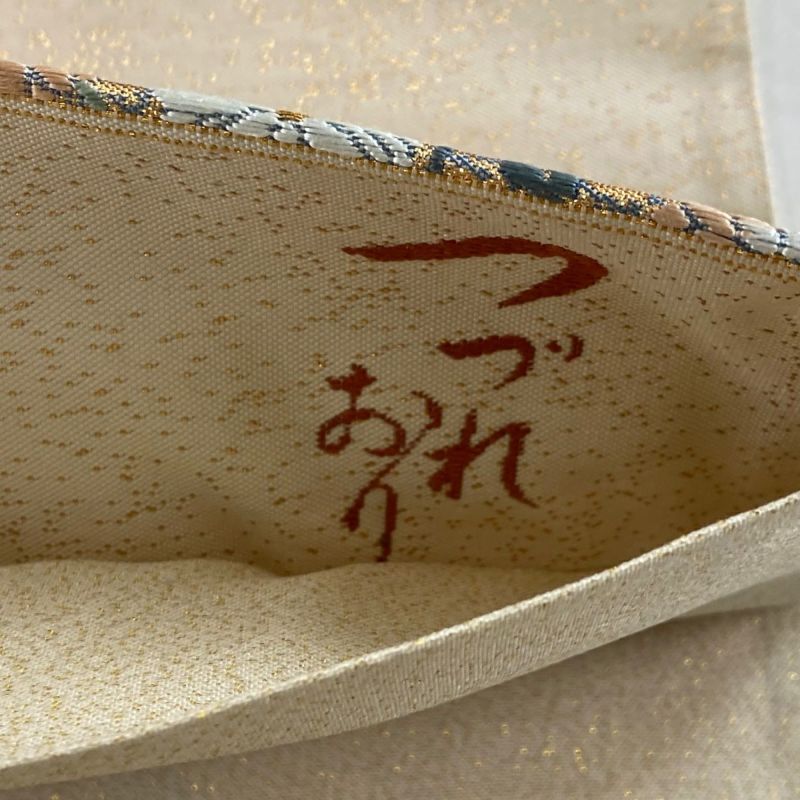 つづれ
おり